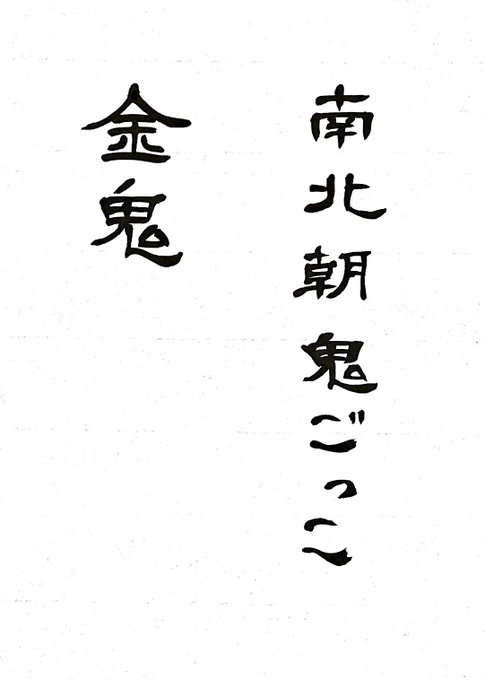 南北朝鬼ごっこ
金鬼